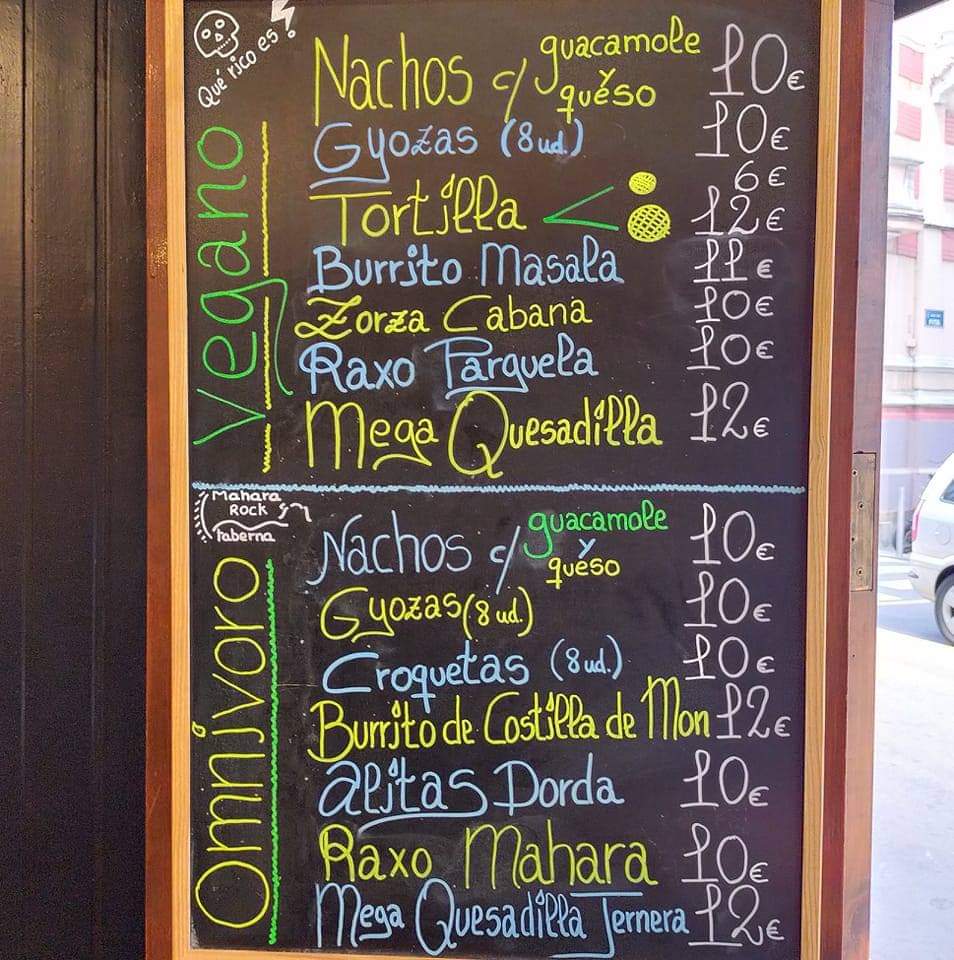 Qué rico es!
Vegano
Nachos c/ guacamole y queso 10€
Gyozas (8 ud.) 10€
6€
Tortilla < 12€
Burrito Masala 11€
Zorza Cabana 10€
Raxo Parquela 10€
Mega Quesadilla 12€
Mahara
Rock
Taberna
Omnivoro
Nachos c/ guacamole y queso 10€
Gyozas (8 ud.) 10€
Croquetas (8 ud.) 10€
Burrito de Costilla de Mon 12€
Alitas Dorda 10€
Raxo Mahara 10€
Mega Quesadilla Ternera 12€